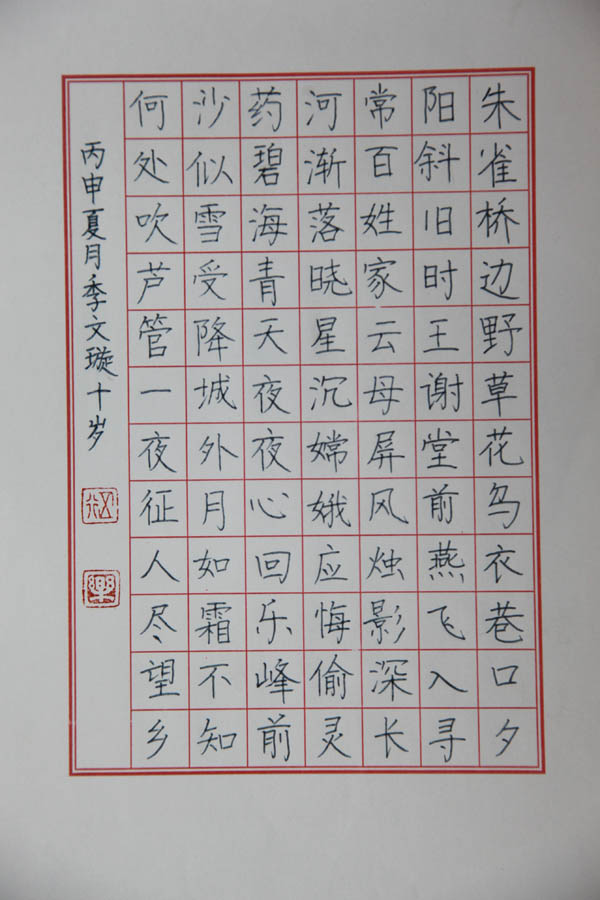 朱雀桥边野草花乌衣巷口夕
阳斜旧时王谢堂前燕飞入寻
常百姓家云母屏风烛影深长
河渐落晓星沉嫦娥应悔偷灵
药碧海青天夜夜心回乐峰前
沙似雪受降城外月如霜不知
何处吹芦管一夜征人尽望乡
丙申夏月季文璇十岁